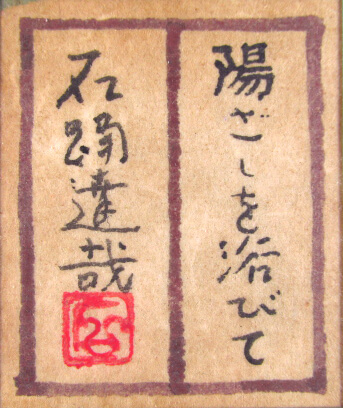 陽ざしを浴びて
石踊達哉